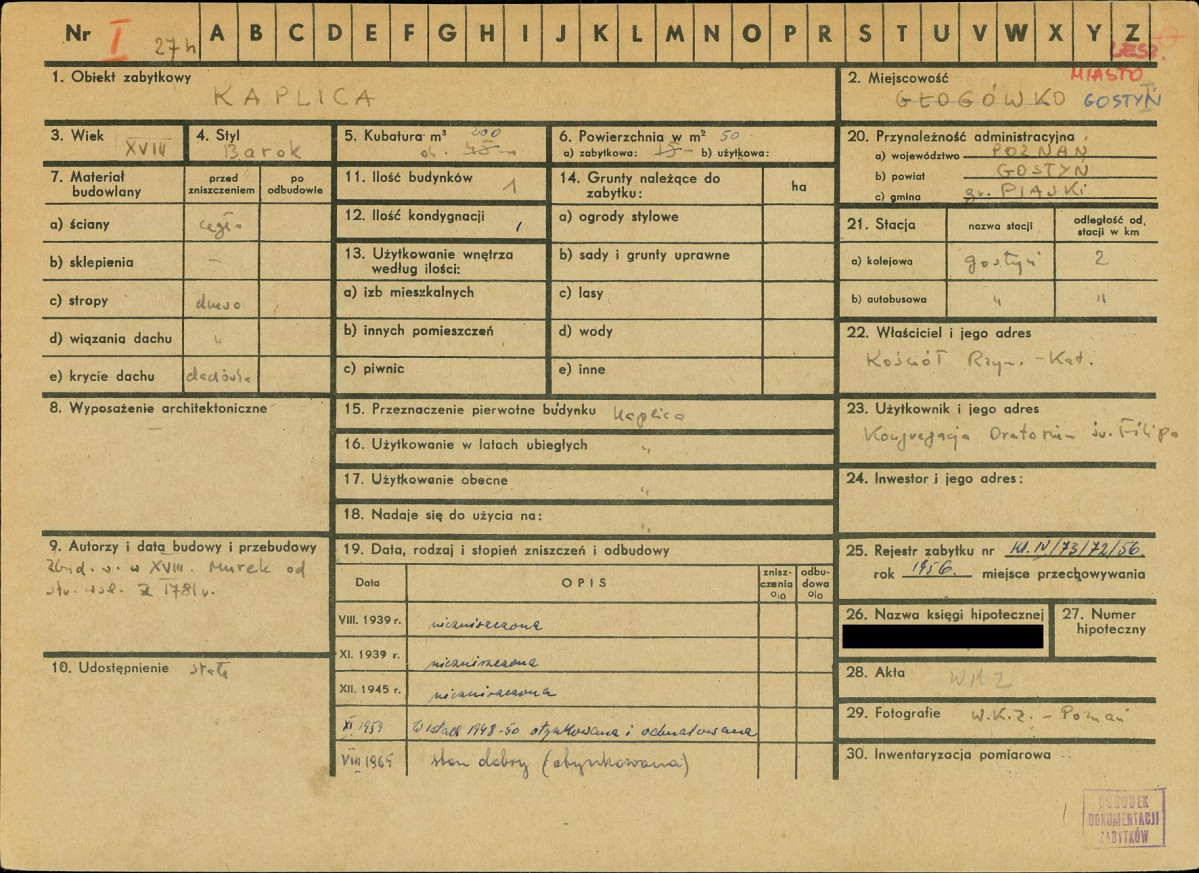 Nr I 27h A B C D E F G H I J K L M N O P R S T U V W X Y Z
LESZ.
1. Obiekt zabytkowy
KAPLICA
2. Miejscowość
MIASTO
GŁOGÓWKO GOSTYŃ
3. Wiek XVIII
4. Styl Barok
5. Kubatura m³ 200
ok. 45 m
6. Powierzchnia w m² 50
a) zabytkowa: 15 m b) użytkowa:
20. Przynależność administracyjna
a) województwo POZNAŃ
b) powiat GOSTYŃ
c) gmina gr. PIASKI
7. Materiał budowlany
przed zniszczeniem
po odbudowie
a) ściany cegła
b) sklepienia -
c) stropy drewo
d) wiązania dachu "
e) krycie dachu dachówka
11. Ilość budynków 1
12. Ilość kondygnacji 1
13. Użytkowanie wnętrza
według ilości:
a) izb mieszkalnych
b) innych pomieszczeń
c) piwnic
14. Grunty należące do
zabytku:
ha
a) ogrody stylowe
b) sady i grunty uprawne
c) lasy
d) wody
e) inne
21. Stacja
nazwa stacji
odległość od, stacji w km
a) kolejowa Gostyń 2
b) autobusowa " "
22. Właściciel i jego adres
Kościół Rzym.-Kat.
8. Wyposażenie architektoniczne
-
15. Przeznaczenie pierwotne budynku Kaplica
16. Użytkowanie w latach ubiegłych "
17. Użytkowanie obecne "
18. Nadaje się do użycia na: "
23. Użytkownik i jego adres
Kongregacja Oratorium św. Filipa
24. Inwestor i jego adres:
9. Autorzy i data budowy i przebudowy
Zbud. w XVIII. Murek od
z 1781 r.
10. Udostępnienie stałe
19. Data, rodzaj i stopień zniszczeń i odbudowy
Data
OPIS
znisz-
czenia
%
odbu-
dowa
%
VIII. 1939 r. niezniszczona
XI. 1939 r. niezniszczona
XII. 1945 r. niezniszczona
XI 1959 W latach 1948-50 otynkowana i odmalowana
VIII 1965 stan dobry (otynkowana)
25. Rejestr zabytku nr kl. IV/73/72/56.
rok 1956. miejsce przechowywania
26. Nazwa księgi hipotecznej
27. Numer
hipoteczny
28. Akta WKZ
29. Fotografie W.K.Z. - Poznań
30. Inwentaryzacja pomiarowa
OŚRODEK
DOKUMENTACJI
ZABYTKÓW